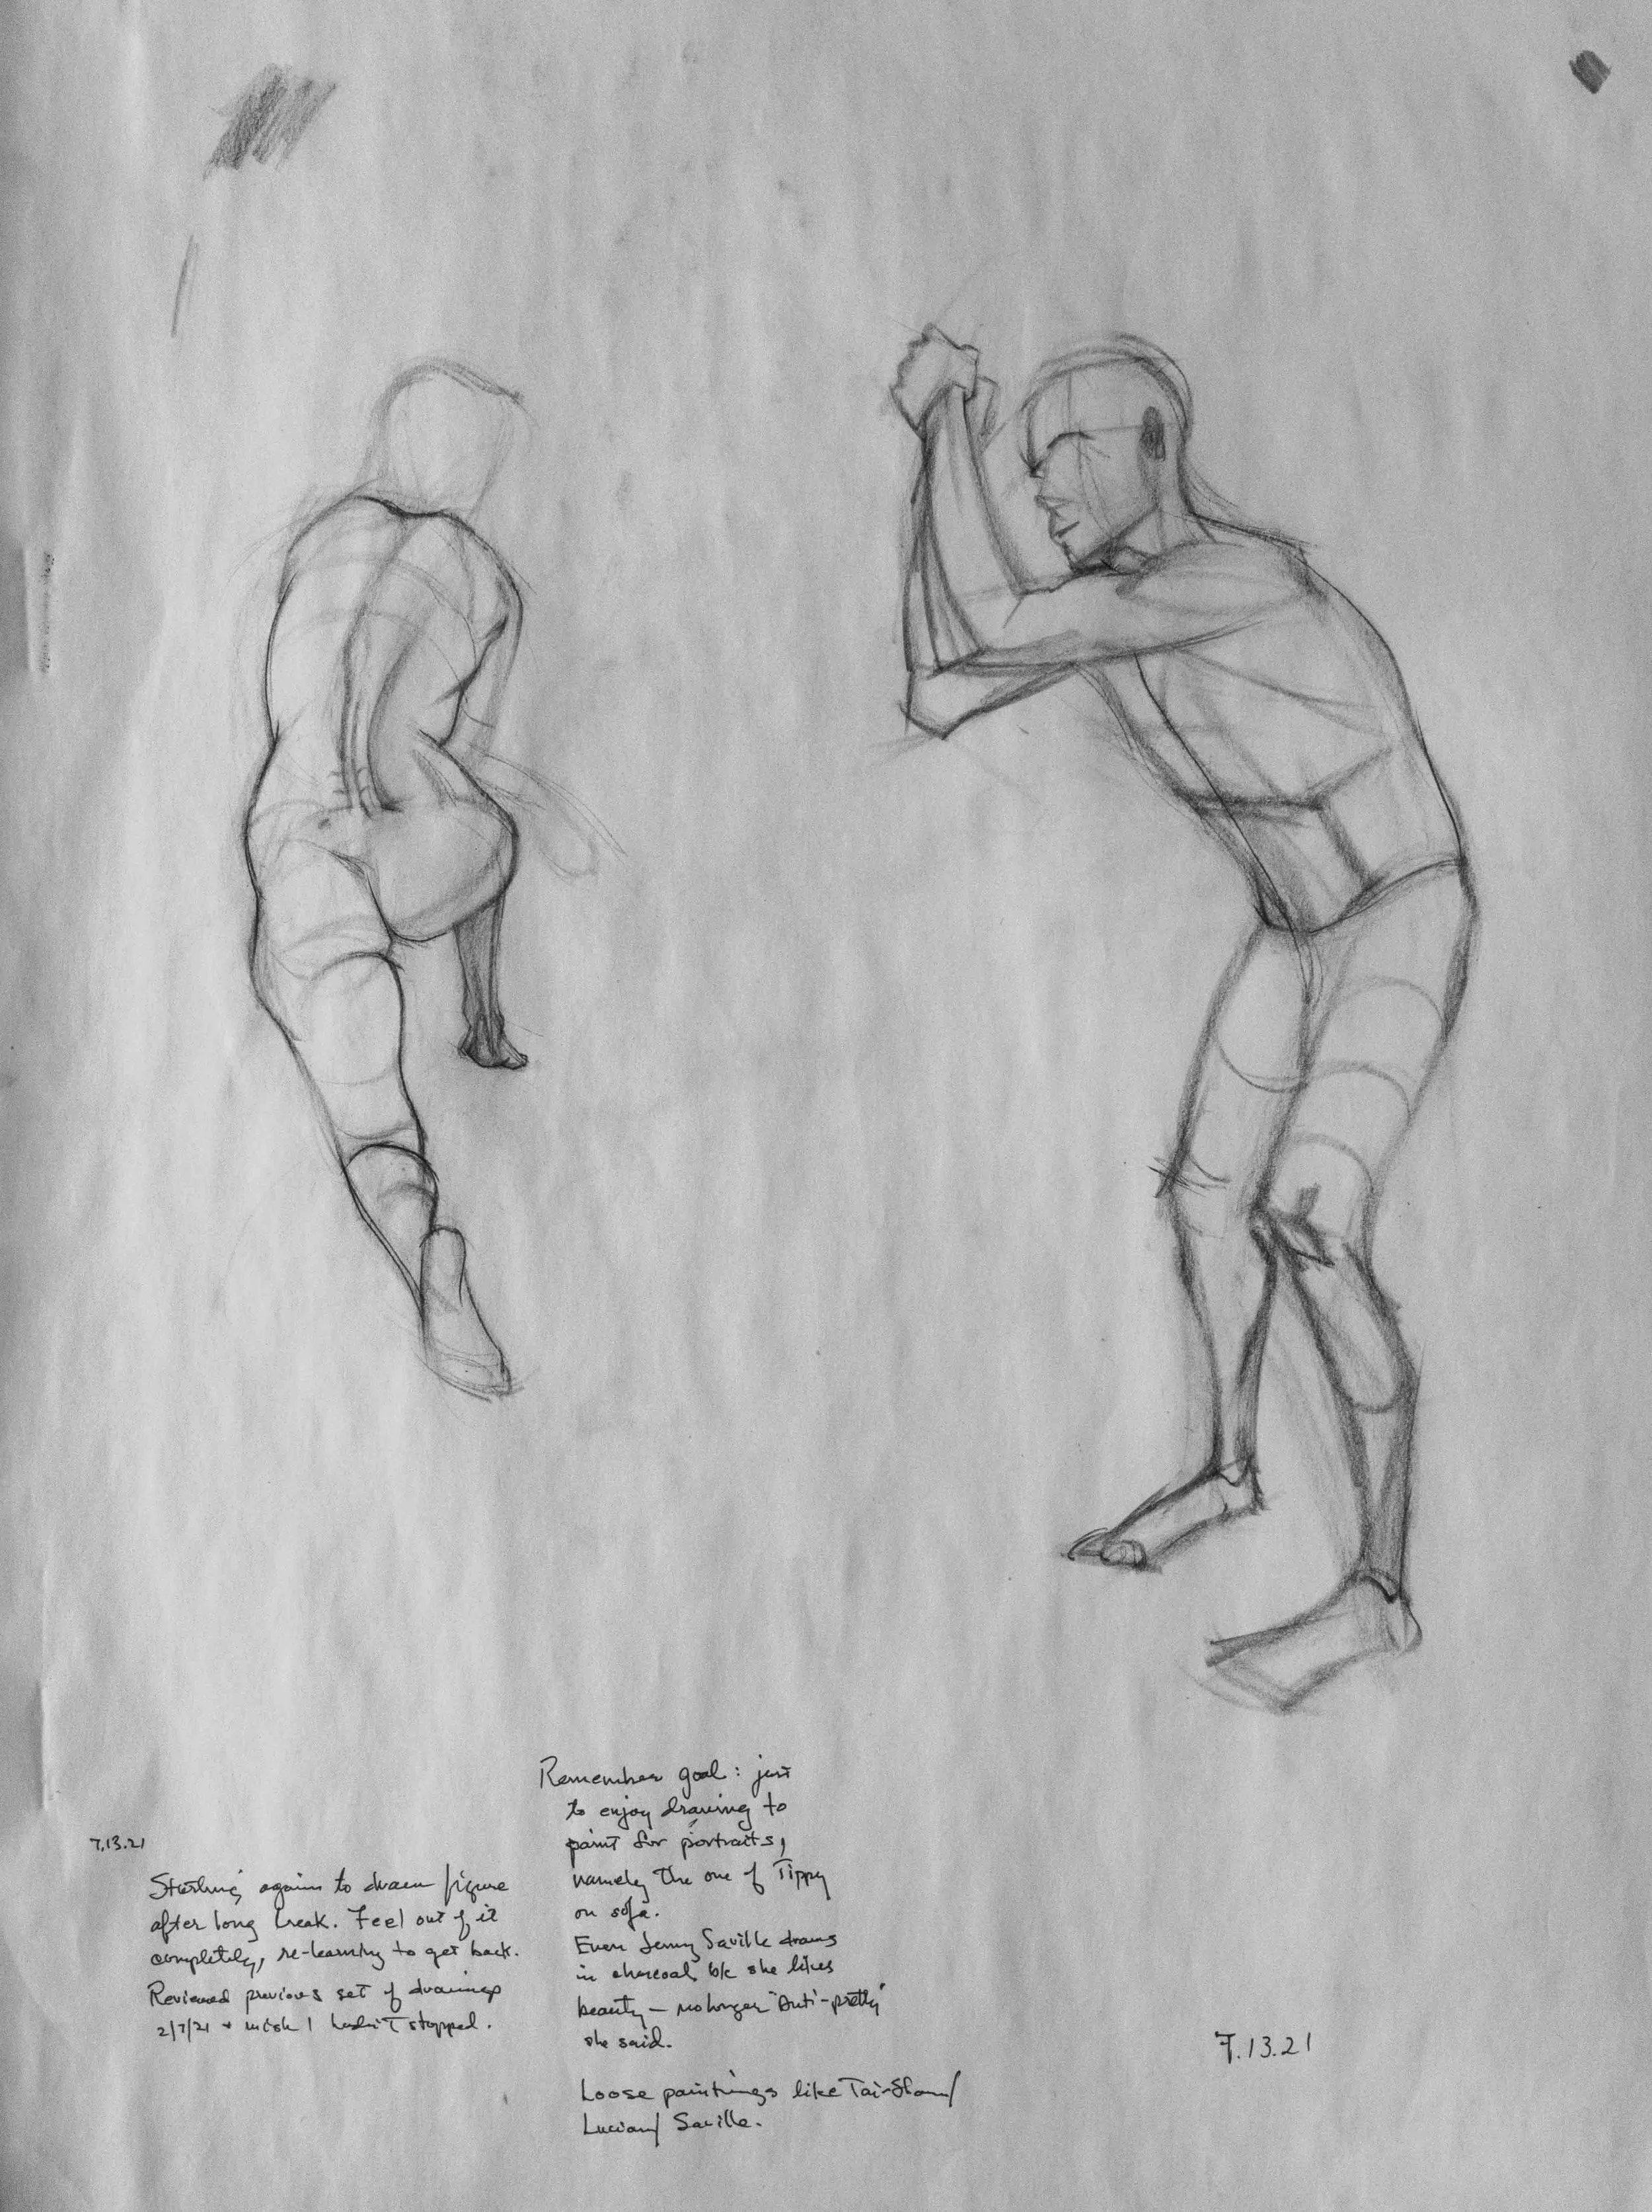 7.13.21
Starting again to draw figure
after long break. Feel out of it
completely, re-learning to get back.
Reviewed previous set of drawings
2/7/21 + wish I hadn't stopped.
Remember goal: just
to enjoy drawing to
paint for portraits,
namely the one of Tippy
on sofa.
Even Jenny Saville draws
in charcoal b/c she likes
beauty – no longer "Anti-pretty"
she said.
Loose paintings like Tai-Shan/
Lucian/ Saville.
7.13.21